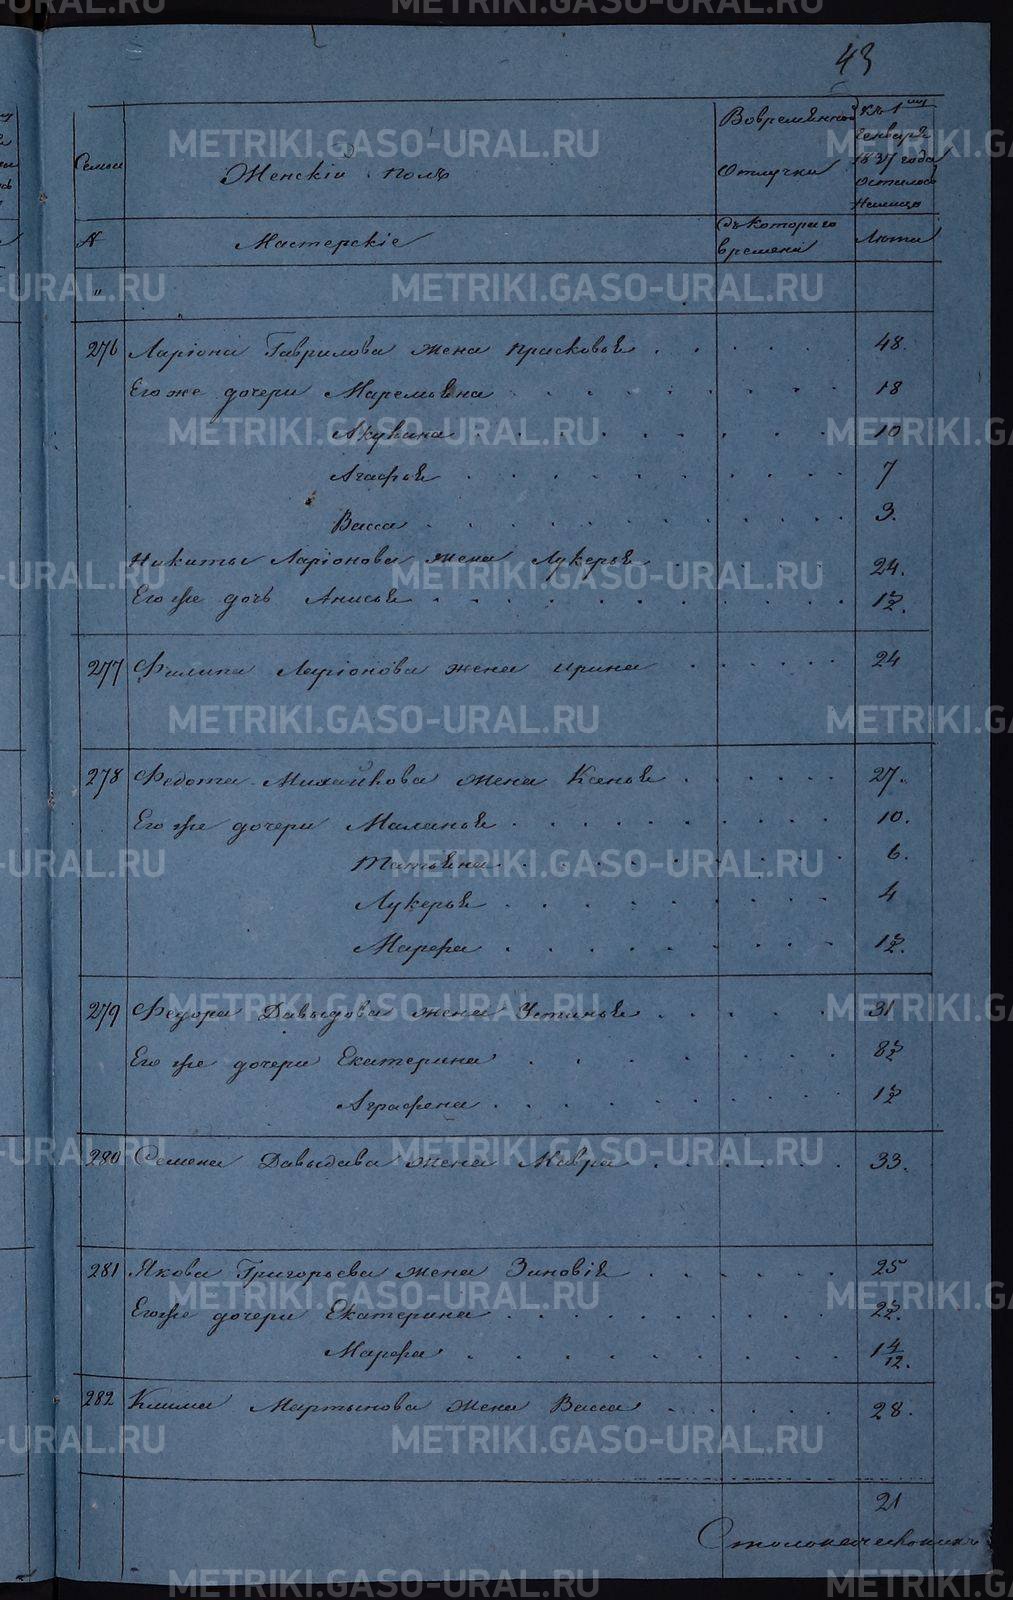 43
Семьи
Женскiй полъ
Вовременной Отлучки
Къ 1му Генваря 1837 года осталось Налицо
№
Мастерскiе
Съкотораго времени
Лѣта
"
276 Ларiона Гаврилова жена прасковья . . . . . 48.
Егоже дочери Маремьяна . . . . . . . 18
Акулина . . . . . . . . 10
Агафья . . . . . . . . 7
Васса . . . . . . . . 3.
Никиты Ларiонова жена Лукерья . . . . . 24.
Его же дочь Анисья . . . . . . . . 1½.
277 Филипа Ларiонова жена ирина . . . . . 24
278 Федота Михайлова жена Ксенья . . . . . 27.
Его же дочери Маланья . . . . . . . 10.
Татьяна . . . . . . . 6.
Лукерья . . . . . . . 4
Марфа . . . . . . . 1½.
279 Федора Давыдова жена Устинья . . . . . 31
Его же дочери Екатерина . . . . . . 8½
Аграфена . . . . . . . 1½
280 Семена Давыдава жена Мавра . . . . . 33.
281 Якова Григорьева жена Зиновiя . . . . . 25
Егоже дочери Екатерина . . . . . . . 2½.
Марфа . . . . . . . 1 4/12.
282 Клима Мартынова жена Васса . . . . . 28.
21
METRIKI.GASO-URAL.RU